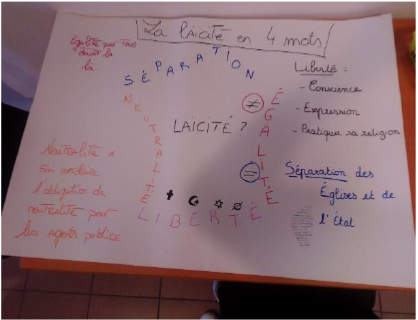 La laïcité en 4 mots
Égalité pour tous
devant la
la
SÉPARATION
NEUTRALITÉ
ÉGALITÉ
LIBERTÉ
LAÏCITÉ ?
≠
=
Liberté :
- Conscience
- Expression
- Pratiqua sa religion
Séparation des
Églises et de
l'État
Neutralité
l'obligation de
neutralité pour
les agents publics